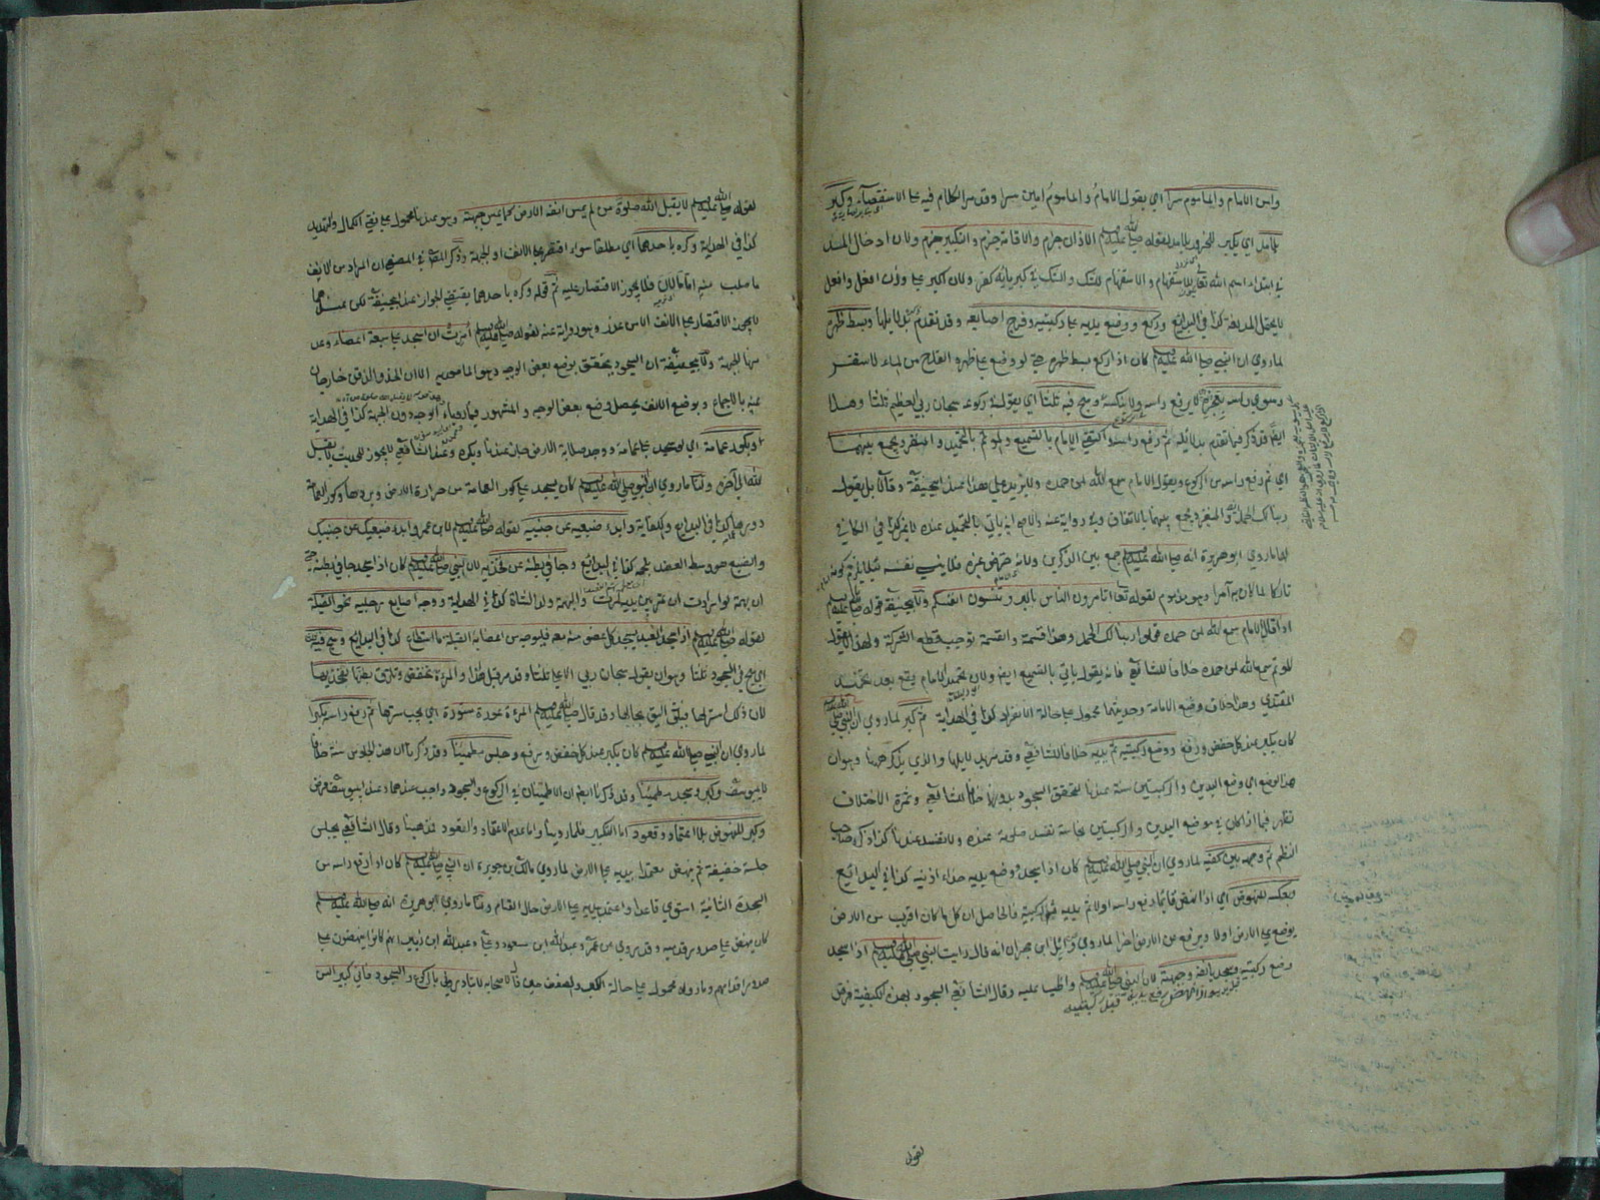 وامن الامام والماموم سرا اي يقول الامام والماموم امين سرا وقد مر الكلام فيه على الاستقصاء وكبر
بلا مد اي يكبر للركوع بلا مد لقوله صلى الله عليه وسلم الاذان جزم والاقامة جزم والتكبير جزم ولان ادخال المد
في ابتداء اسم الله تعالى للاستفهام والاستفهام للشك والشك في كبريائه كفر ولان اكبر على وزن افعل وافعل
لا يحتمل المد لغة كذا في البدائع وركع ووضع يديه على ركبتيه وفرج اصابعه وقد تقدم كل بدلايلها وبسط ظهره
لما روي ان النبي صلى الله عليه وسلم كان اذا ركع بسط ظهره حتى لو وضع على ظهره القدح من الماء لاستقر
وسوى راسه بعجزه لا يرفع راسه ولا ينكسه وسبح فيه ثلثا اي يقول في ركوعه سبحان ربي العظيم ثلثا وهذا
ايضا قد ذكر فيما تقدم بدلايله ثم رفع راسه واكتفى الامام بالتسميع والموتم بالتحميد والمنفرد يجمع بينهما
اي ثم رفع راسه من الركوع ويقول الامام سمع الله لمن حمده ولا يزيد على هذا عند ابي حنيفة وقالا بل يقول
ربنا لك الحمد والمنفرد يجمع بينهما بالاتفاق وفي رواية عنه والاصح انه ياتي بالتحميد عنده لا غير كذا في الكافي
لهما ما روي ابو هريرة انه صلى الله عليه وسلم جمع بين الذكرين ولانه حرض غيره فلا ينسى نفسه لئلا يلزم كونه
تاركا لما كان به آمرا وهو مذموم لقوله تعالى اتامرون الناس بالبر وتنسون انفسكم ولابي حنيفة قوله صلى الله عليه وسلم
اذا قال الامام سمع الله لمن حمده قولوا ربنا لك الحمد وهذا قسمة والقسمة توجب قطع الشركة ولهذا لا يقول
الموتم سمع الله لمن حمده خلافا للشافعي فانه يقول ياتي بالتسميع ايضا ولان تحميد الامام يقع بعد تحميد
المقتدي وهذا خلاف وضع الامامة وحديثهما محمول على حالة الانفراد كذا في الهداية ثم كبر لما روي ان النبي صلى
كان يكبر عند كل خفض ورفع ووضع ركبتيه ثم يديه خلافا للشافعي وقد مر بدلايلها والذي يذكر ههنا وهو ان
هذا الوضع اي وضع اليدين والركبتين سنة عندنا لتحقق السجود بدونهما خلافا للشافعي وثمرة الاختلاف
تظهر فيما اذا كان في موضع اليدين والركبتين نجاسة تفسد صلوته عنده ولا تفسد عندنا كذا ذكره صاحب
النظم ثم وجهه بين كفيه لما روي ان النبي صلى الله عليه وسلم كان اذا سجد وضع يديه حذاء اذنيه كذا في البدائع
وبعكسه للنهوض اي اذا نهض قائما رفع راسه اولا ثم يديه ثم ركبتيه فالحاصل ان كل ما كان اقرب من الارض
يوضع على الارض اولا ويرفع من الارض اخرا لما روي وائل ابن حجر انه قال رايت النبي صلى الله عليه وسلم اذا سجد
وضع ركبتيه وسجد بانفه وجبهته لان النبي صلى الله عليه وسلم واظب عليه وقال الشافعي السجود بهذه الكيفية فرض
قبل يديه واذا نهض رفع يديه قبل ركبتيه
لقوله
لقوله صلى الله عليه وسلم لا يقبل الله صلوة من لم يمس انفه الارض كما يمس جبهته وهو عندنا محمول على نفي الكمال والتهديد
كذا في الهداية وكره باحدهما اي مطلقا سواء اقتصر على الانف او الجبهة وذكر المصنف في المصفى ان المراد من الانف
ما صلب منه اما ما لان فلا يجوز الاقتصار عليه ثم قوله وكره باحدهما يقتضي الجواز عند ابي حنيفة لكن عندهما
لا يجوز الاقتصار على الانف الا من عذر وهو رواية عنه لقوله صلى الله عليه وسلم امرت ان اسجد على سبعة اعضاء وعد
منها الجبهة ولابي حنيفة ان السجود يتحقق بوضع بعض الوجه وهو المامور به الا ان الخد والذقن خارجان
عنه بالاجماع وبوضع الانف يحصل وضع بعض الوجه والمشهور فيما رويناه الوجه دون الجبهة كذا في الهداية
او بكور عمامته اي لو سجد على عمامته ووجد صلابة الارض جاز عندنا ويكره وعند الشافعي لا يجوز للحديث لا يقبل
الله الى آخره ولنا ما روي ان النبي صلى الله عليه وسلم كان يسجد على كور العمامة من حرارة الارض وبردها وكور العمامة
دورها كذا في البدائع والكفاية وابدى ضبعيه عن جنبيه لقوله صلى الله عليه وسلم لابن عمر وابد ضبعيك عن جنبيك
والضبع هو وسط العضد بلحمه كذا في البدائع وجافى بطنه عن فخذيه لان النبي صلى الله عليه وسلم كان اذا سجد جافى بطنه حتى
ان بهمة لو ارادت ان تمر بين يديه لمرت والبهمة ولد الشاة كذا في الهداية ووجه اصابع رجليه نحو القبلة
لقوله صلى الله عليه وسلم اذا سجد العبد يسجد كل عضو منه معه فليوجه من اعضائه القبلة ما استطاع كذا في البدائع وسبح فيه
اي سبح في السجود ثلثا وهو ان يقول سبحان ربي الاعلى ثلثا وقد مر قبل هذا والمرءة تنخفض وتلزق بطنها بفخذيها
لان ذلك استر لها ويليق اليق بحالها وقد قال صلى الله عليه وسلم المرءة عورة مستورة اي يجب سترها ثم رفع راسه مكبرا
لما روي ان النبي صلى الله عليه وسلم كان يكبر عند كل خفض ورفع وجلس مطمئنا وقد ذكرنا ان هذا الجلوس سنة خلافا
لابي يوسف وكبر وسجد مطمئنا وقد ذكرنا ايضا ان الاطمئنان في الركوع والسجود واجب عندهما وعند ابي يوسف فرض
وكبر للنهوض بلا اعتماد وقعود اما التكبير فلما روينا واما عدم الاعتماد والقعود مذهبنا وقال الشافعي يجلس
جلسة خفيفة ثم ينهض معتمدا بيديه على الارض لما روي مالك بن حويرث ان النبي صلى الله عليه وسلم كان اذا رفع راسه من
السجدة الثانية استوى قاعدا واعتمد بيديه على الارض حال القيام ولنا ما روي ابو هريرة انه صلى الله عليه وسلم
كان ينهض على صدور قدميه وقد روي عن عمر وعبد الله ابن مسعود وعلي وعبد الله ابن زبير انهم كانوا ينهضون على
صدور اقدامهم وما رواه محمول على حالة الكبر والضعف حتى قال لاصحابه لا تبادروني بالركوع والسجود فاني كبير السن